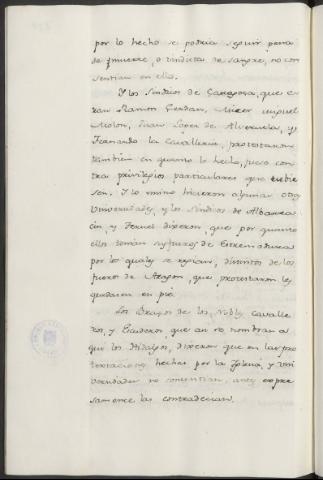 por lo hecho se podria seguir pena
de muerte, o vindicta de sangre, no con
sentian en ello.
Y los Sindicos de Caragoça, que e
ran Ramon Cerdan, Micer
Molon, Juan Lopez de Alberuela, y
Fernando la Cavalleria, protestaron
tambien en quanto lo hecho, fuese con
tra privilegios particulares que tubie
sen. Y lo mismo hicieron algunas otras
Universidades, y los Sindicos de Albarra
cin, y Teruel dixeron, que por quanto
ellos tenian sus fueros de Extremadura
por los quales se regian, distintos de los
fueros de Aragon, que protestaron les
quedasen en pie.
Los Brazos de los Nobles Cavalle
ros, y Escuderos, que an no nombran a
qui los Hidalgos, dixeron que en las pro
textaciones hechas por la Iglesia, y Uni
versidades no consentian, antes expre
samente las contradecian.